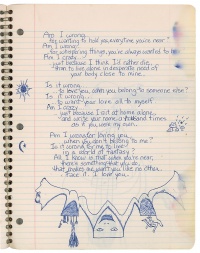 Am I wrong
for waiting to hold you everytime you're near?
Am I wrong
for whispering things, you've always wanted to
Am I crazy
just because I think I'd rather die,
than to live alone in desperate need of
your body close to mine.
Is it wrong
to love you, when you belong to someone else?
Is it wrong
to want your love all to myself
Am I crazy
just because I sit at home alone,
and write your name a thousand times
as if you were my own.
Am I wrong for loving you,
when you don't belong to me?
Is it wrong for me to live
in a world of fantasy?
All I know is that when you're near,
there's something that you do,
that makes me want you like no other.
Face it. I love you.